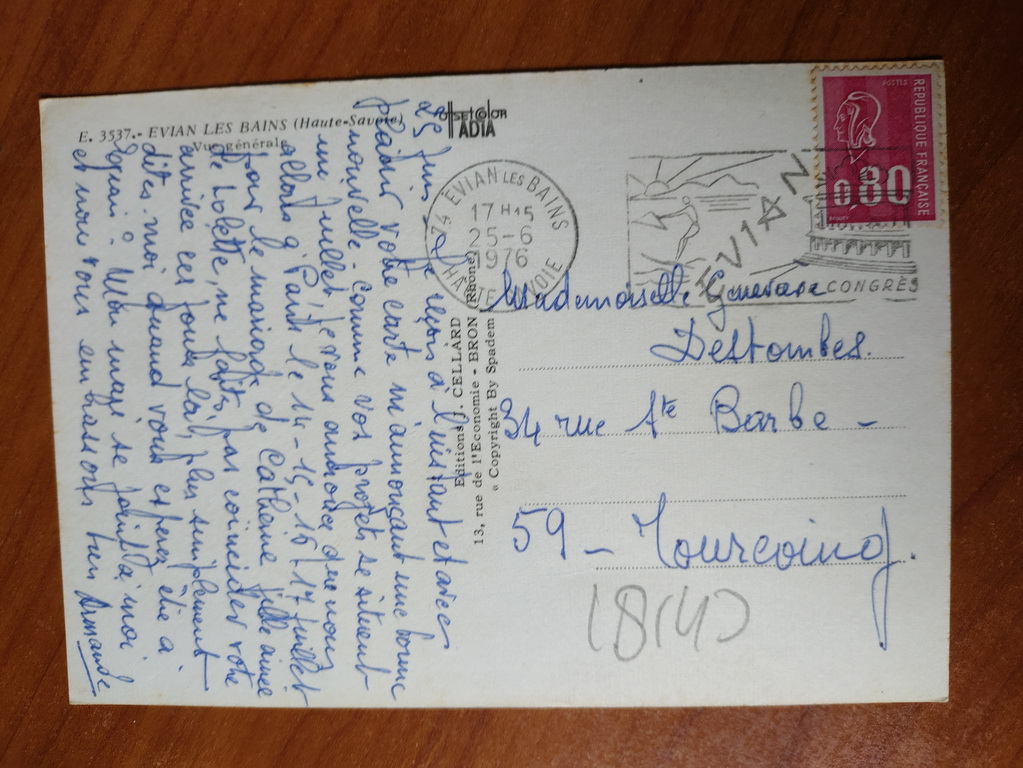 E. 3537.- EVIAN LES BAINS (Haute-Savoie)
Vue générale
OFFSETCOLOR
IADIA
25 Juin Je reçois à l'instant et avec
plaisir votre carte m'annonçant une bonne
nouvelle - comme vos projets se situent
en Juillet, je vous annonce que nous
allons à Paris le 14-15-16-17 juillet
pour le mariage de Catherine fille ainée
de Colette, ne faites pas coincider votre
arrivée ces jours là, plus simplement
dites moi quand vous espérez être à
Evian. Mon mari se joint à moi
et nous vous embrassons bien Armande
Editions J. CELLARD
13, rue de l'Economie - BRON (Rhône)
« Copyright By Spadem
74 EVIAN LES BAINS
17 H 15
25-6
1976
HAUTE SAVOIE
EVIAN
CONGRÈS
POSTES
REPUBLIQUE FRANÇAISE
0,80
BEQUET
Mademoiselle Geneviève
Destombes.
34 rue Ste Barbe -
59 - Tourcoing.